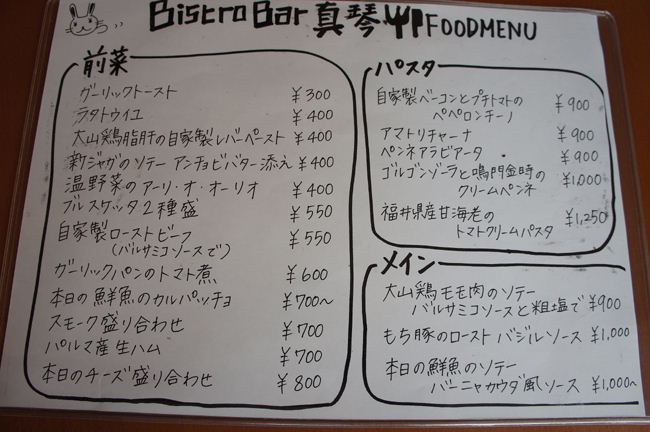 Bistro Bar 真琴 FOODMENU
前菜
ガーリックトースト ¥300
ラタトウイユ ¥400
大山鶏脂肝の自家製レバーペースト ¥400
新ジャガのソテー アンチョビバター添え ¥400
温野菜のアーリ・オ・オーリオ ¥400
ブルスケッタ2種盛 ¥550
自家製ローストビーフ
(バルサミコソースで) ¥550
ガーリックパンのトマト煮 ¥600
本日の鮮魚のカルパッチョ ¥700〜
スモーク盛り合わせ ¥700
パルマ産生ハム ¥700
本日のチーズ盛り合わせ ¥800
パスタ
自家製ベーコンとプチトマトの
ペペロンチーノ ¥900
アマトリチャーナ ¥900
ペンネアラビアータ ¥900
ゴルゴンゾーラと鳴門金時の
クリームペンネ ¥1,000
福井県産甘海老の
トマトクリームパスタ ¥1,250
メイン
大山鶏モモ肉のソテー
バルサミコソースと粗塩で ¥900
もち豚のロースト バジルソース ¥1,000
本日の鮮魚のソテー
バーニャカウダ風ソース ¥1,000〜